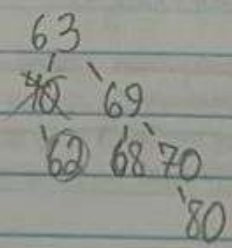 63
69
62 68 70
80